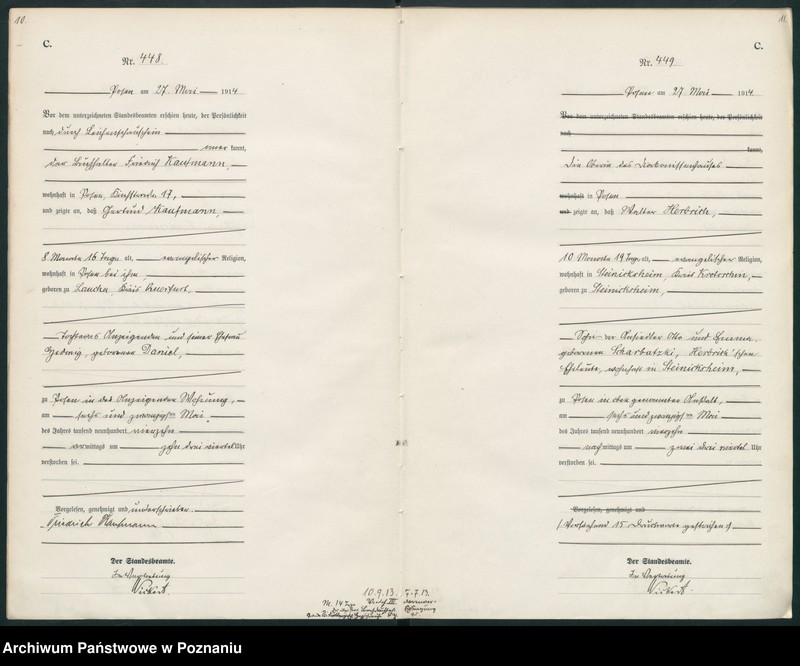 10.
C.
Nr. 448.
Posen am 27. Mai 1914
Vor dem unterzeichneten Standesbeamten erschien heute, der Persönlichkeit
nach, durch Leichenschauschein
kannt,
der Buchhalter Friedrich Kaufmann,
wohnhaft in Posen, 17,
und zeigte an, daß Gertrud Kaufmann,
8 Monate 16 Tage alt, evangelischer Religion,
wohnhaft in Posen bei ihm
geboren zu Laucha, Kreis Querfurt,
Tochter des Anzeigenden und seiner Ehefrau
Hedwig, geborener Daniel,
zu Posen in des Anzeigenden Wohnung,
am sechs und zwanzigsten Mai
des Jahres tausend neunhundert vierzehn
vormittags um zehn drei viertel Uhr
verstorben sei.
Vorgelesen, genehmigt und unterschrieben
Friedrich Kaufmann
Der Standesbeamte.
In Vertretung
11.
C.
Nr. 449.
Posen am 27. Mai 1914
Vor dem unterzeichneten Standesbeamten erschien heute, der Persönlichkeit
nach
kannt,
Die Oberin des Diakonissenhauses
wohnhaft in Posen
und zeigte an, daß Walter Herbrich,
10 Monate 19 Tage alt, evangelischer Religion,
wohnhaft in Steinicksheim, Kreis Krotoschin,
geboren zu Steinicksheim,
Sohn der Ansiedler Otto und Emma,
geborenen Scharbatzki, Herbrich'schen
Eheleute, wohnhaft in Steinicksheim,
zu Posen in oben genannter Anstalt,
am sechs und zwanzigsten Mai
des Jahres tausend neunhundert vierzehn
nachmittags um zwei drei viertel Uhr
verstorben sei.
Vorgelesen, genehmigt und
(Vorstehend 15 Druckworte gestrichen)
Der Standesbeamte.
In Vertretung
10.9.13. 7.7.13.
Archiwum Państwowe w Poznaniu